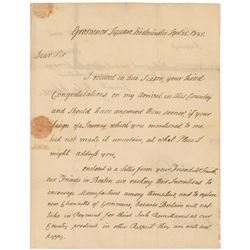 Grosvenor Square Westminster Sept 15. 1785.
Dear Sir
I received in due Season, your kind
Congratulations on my Arrival in this Country
and should have answered them sooner, if your
design of a Journey, which you mentioned to me
had not made it uncertain, at what Place I
might address you.
inclosed is a Letter from your Friend Mr
our Friends in Boston are racking their Inventions to
encourage Manufactures among themselves, and to explore
new Channells of Commerce, because Britain will not
take in Payment for their such Remittances as our
Country produces. in other Respects they are well and
happy.